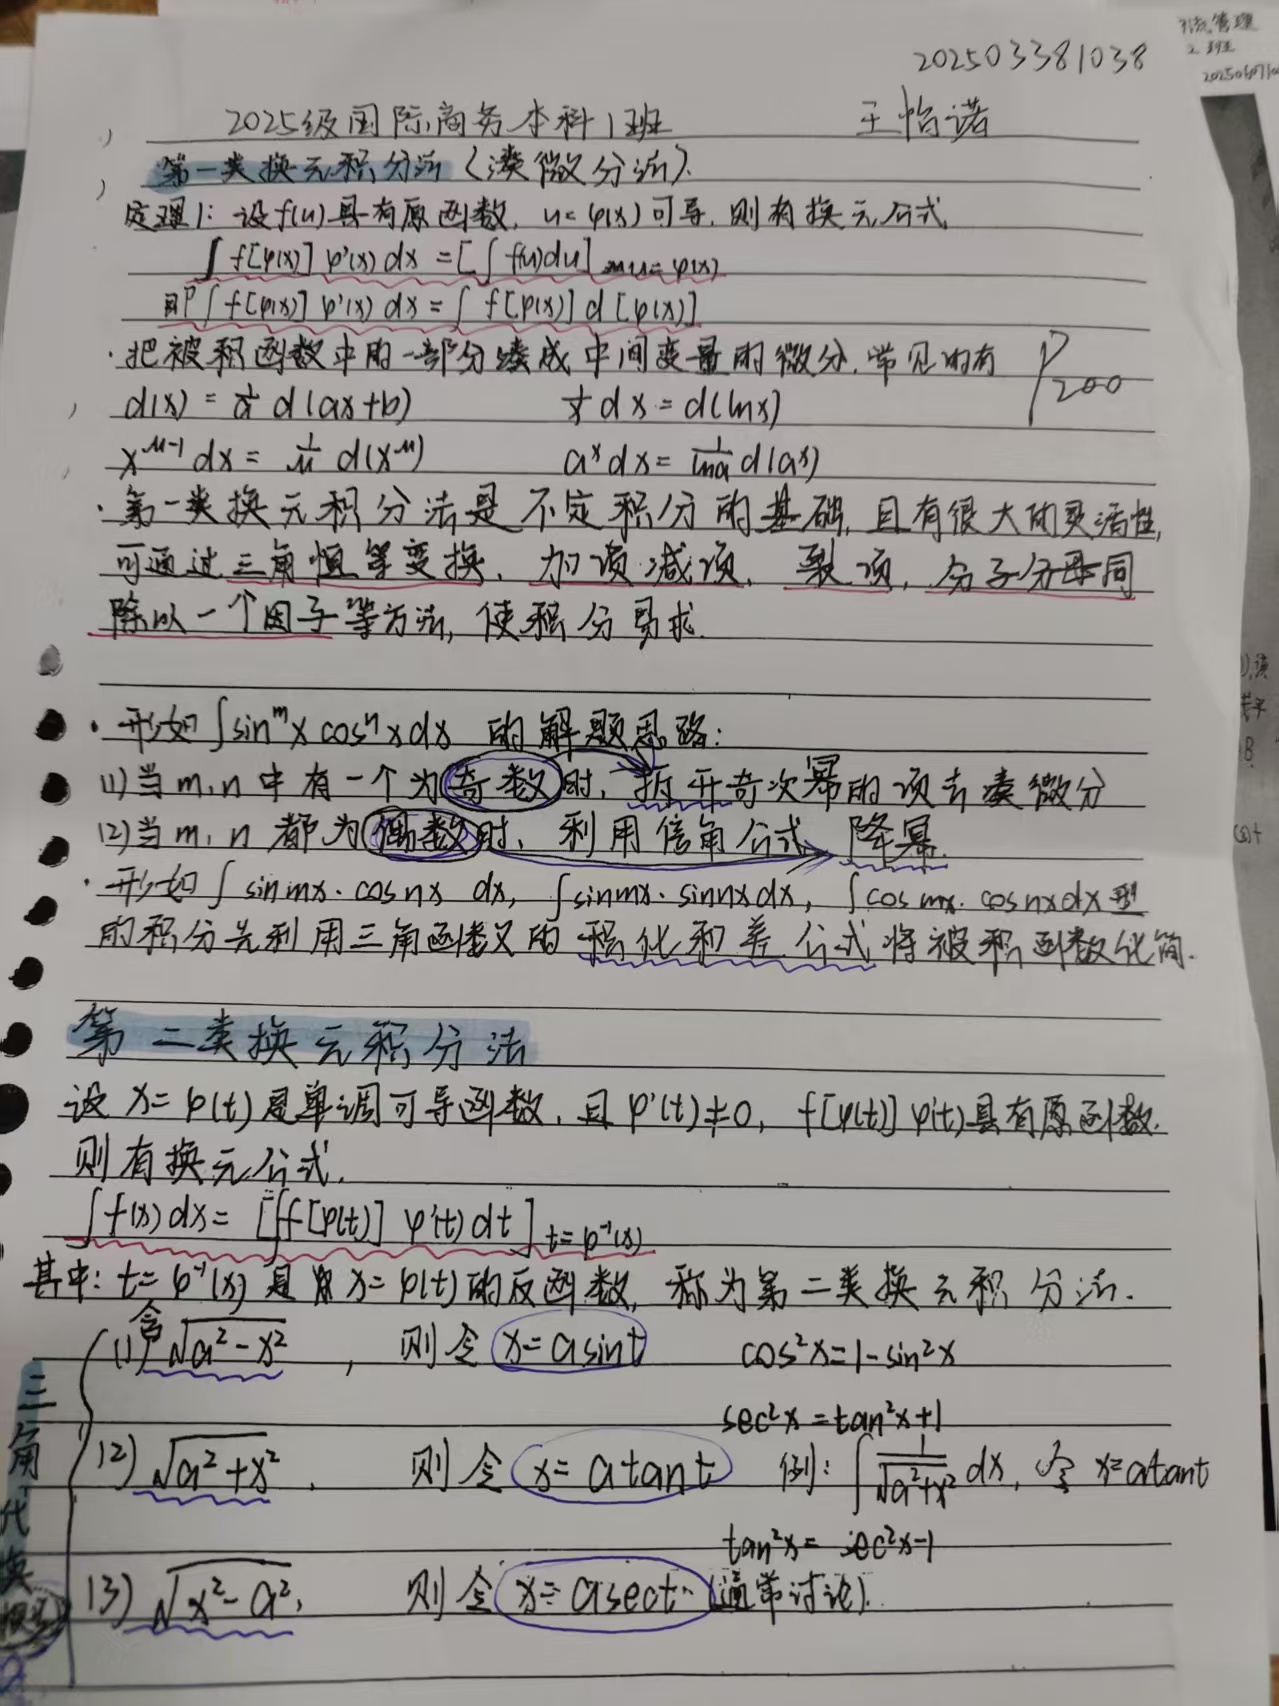 202503381038
2025级国际商务本科1班 王怡诺
第一类换元积分法（凑微分法）.
定理1：设f(u)具有原函数，u=φ(x)可导，则有换元公式
∫f[φ(x)]φ'(x)dx=[∫f(u)du] u=φ(x)
即∫f[φ(x)]φ'(x)dx=∫f[φ(x)]d[φ(x)]
·把被积函数中的一部分凑成中间变量的微分，常见的有 P200
d(x)=1/a d(ax+b) 1/x dx=d(lnx)
x^(μ-1)dx=1/μ d(x^μ) a^x dx=1/lna d(a^x)
·第一类换元积分法是不定积分的基础，且有很大的灵活性，
可通过三角恒等变换、加项减项、裂项，分子分母同
除以一个因子等方法，使积分易求.
·形如∫sin^m x cos^n x dx 的解题思路：
(1)当m,n中有一个为奇数时，拆开奇次幂的项去凑微分
(2)当m,n都为偶数时，利用倍角公式降幂.
·形如∫sinmx·cosnx dx，∫sinmx·sinnxdx，∫cosmx·cosnxdx型
的积分先利用三角函数的积化和差公式将被积函数化简.
第二类换元积分法
设x=φ(t)是单调可导函数，且φ'(t)≠0，f[φ(t)]φ'(t)具有原函数.
则有换元公式.
∫f(x)dx=[∫f[φ(t)]φ'(t)dt] t=φ^-1(x)
其中：t=φ^-1(x)是x=φ(t)的反函数，称为第二类换元积分法.
三角代换
(1)含√(a²-x²)，则令x=asint cos²x=1-sin²x
sec²x=tan²x+1
(2)√(a²+x²)，则令x=atant 例：∫1/√(a²+x²) dx，令x=atant
tan²x=sec²x-1
(3)√(x²-a²)，则令x=asect（通常讨论）.
引流管理
2班